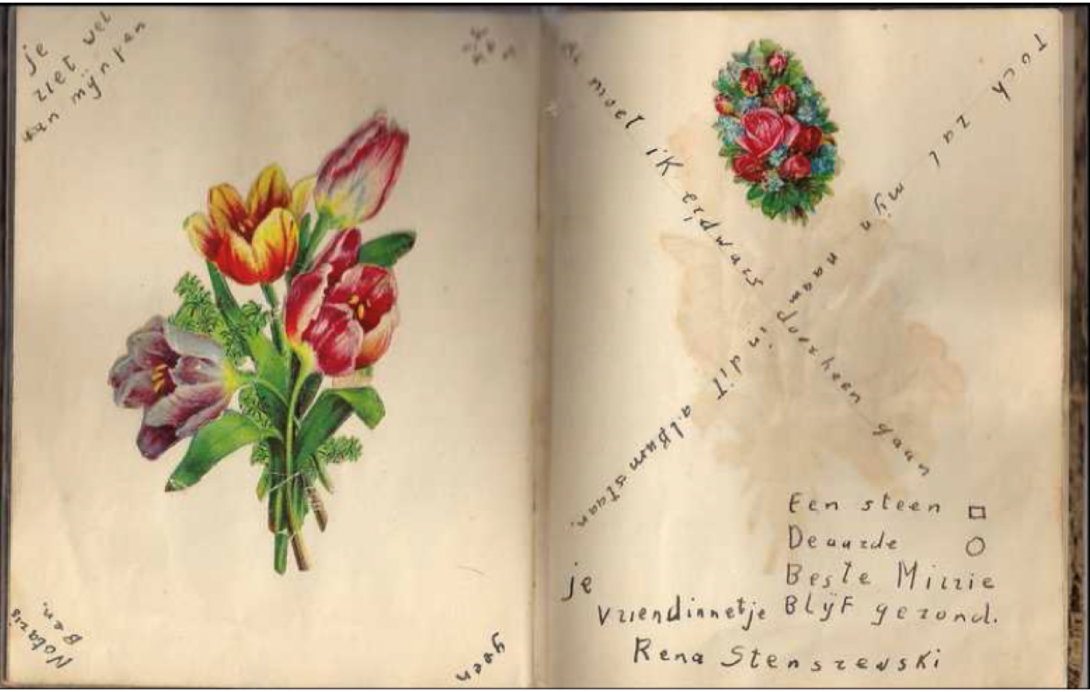 je
ziet wel
aan mijn pen
geen
Notaris
Ben.
Al moet ik erdwars doorheen gaan
Toch zal mijn naam in dit album staan.
Een steen
De aarde
Beste
je
Vriendinnetje Blijf gezond.
Rena Stenszewski